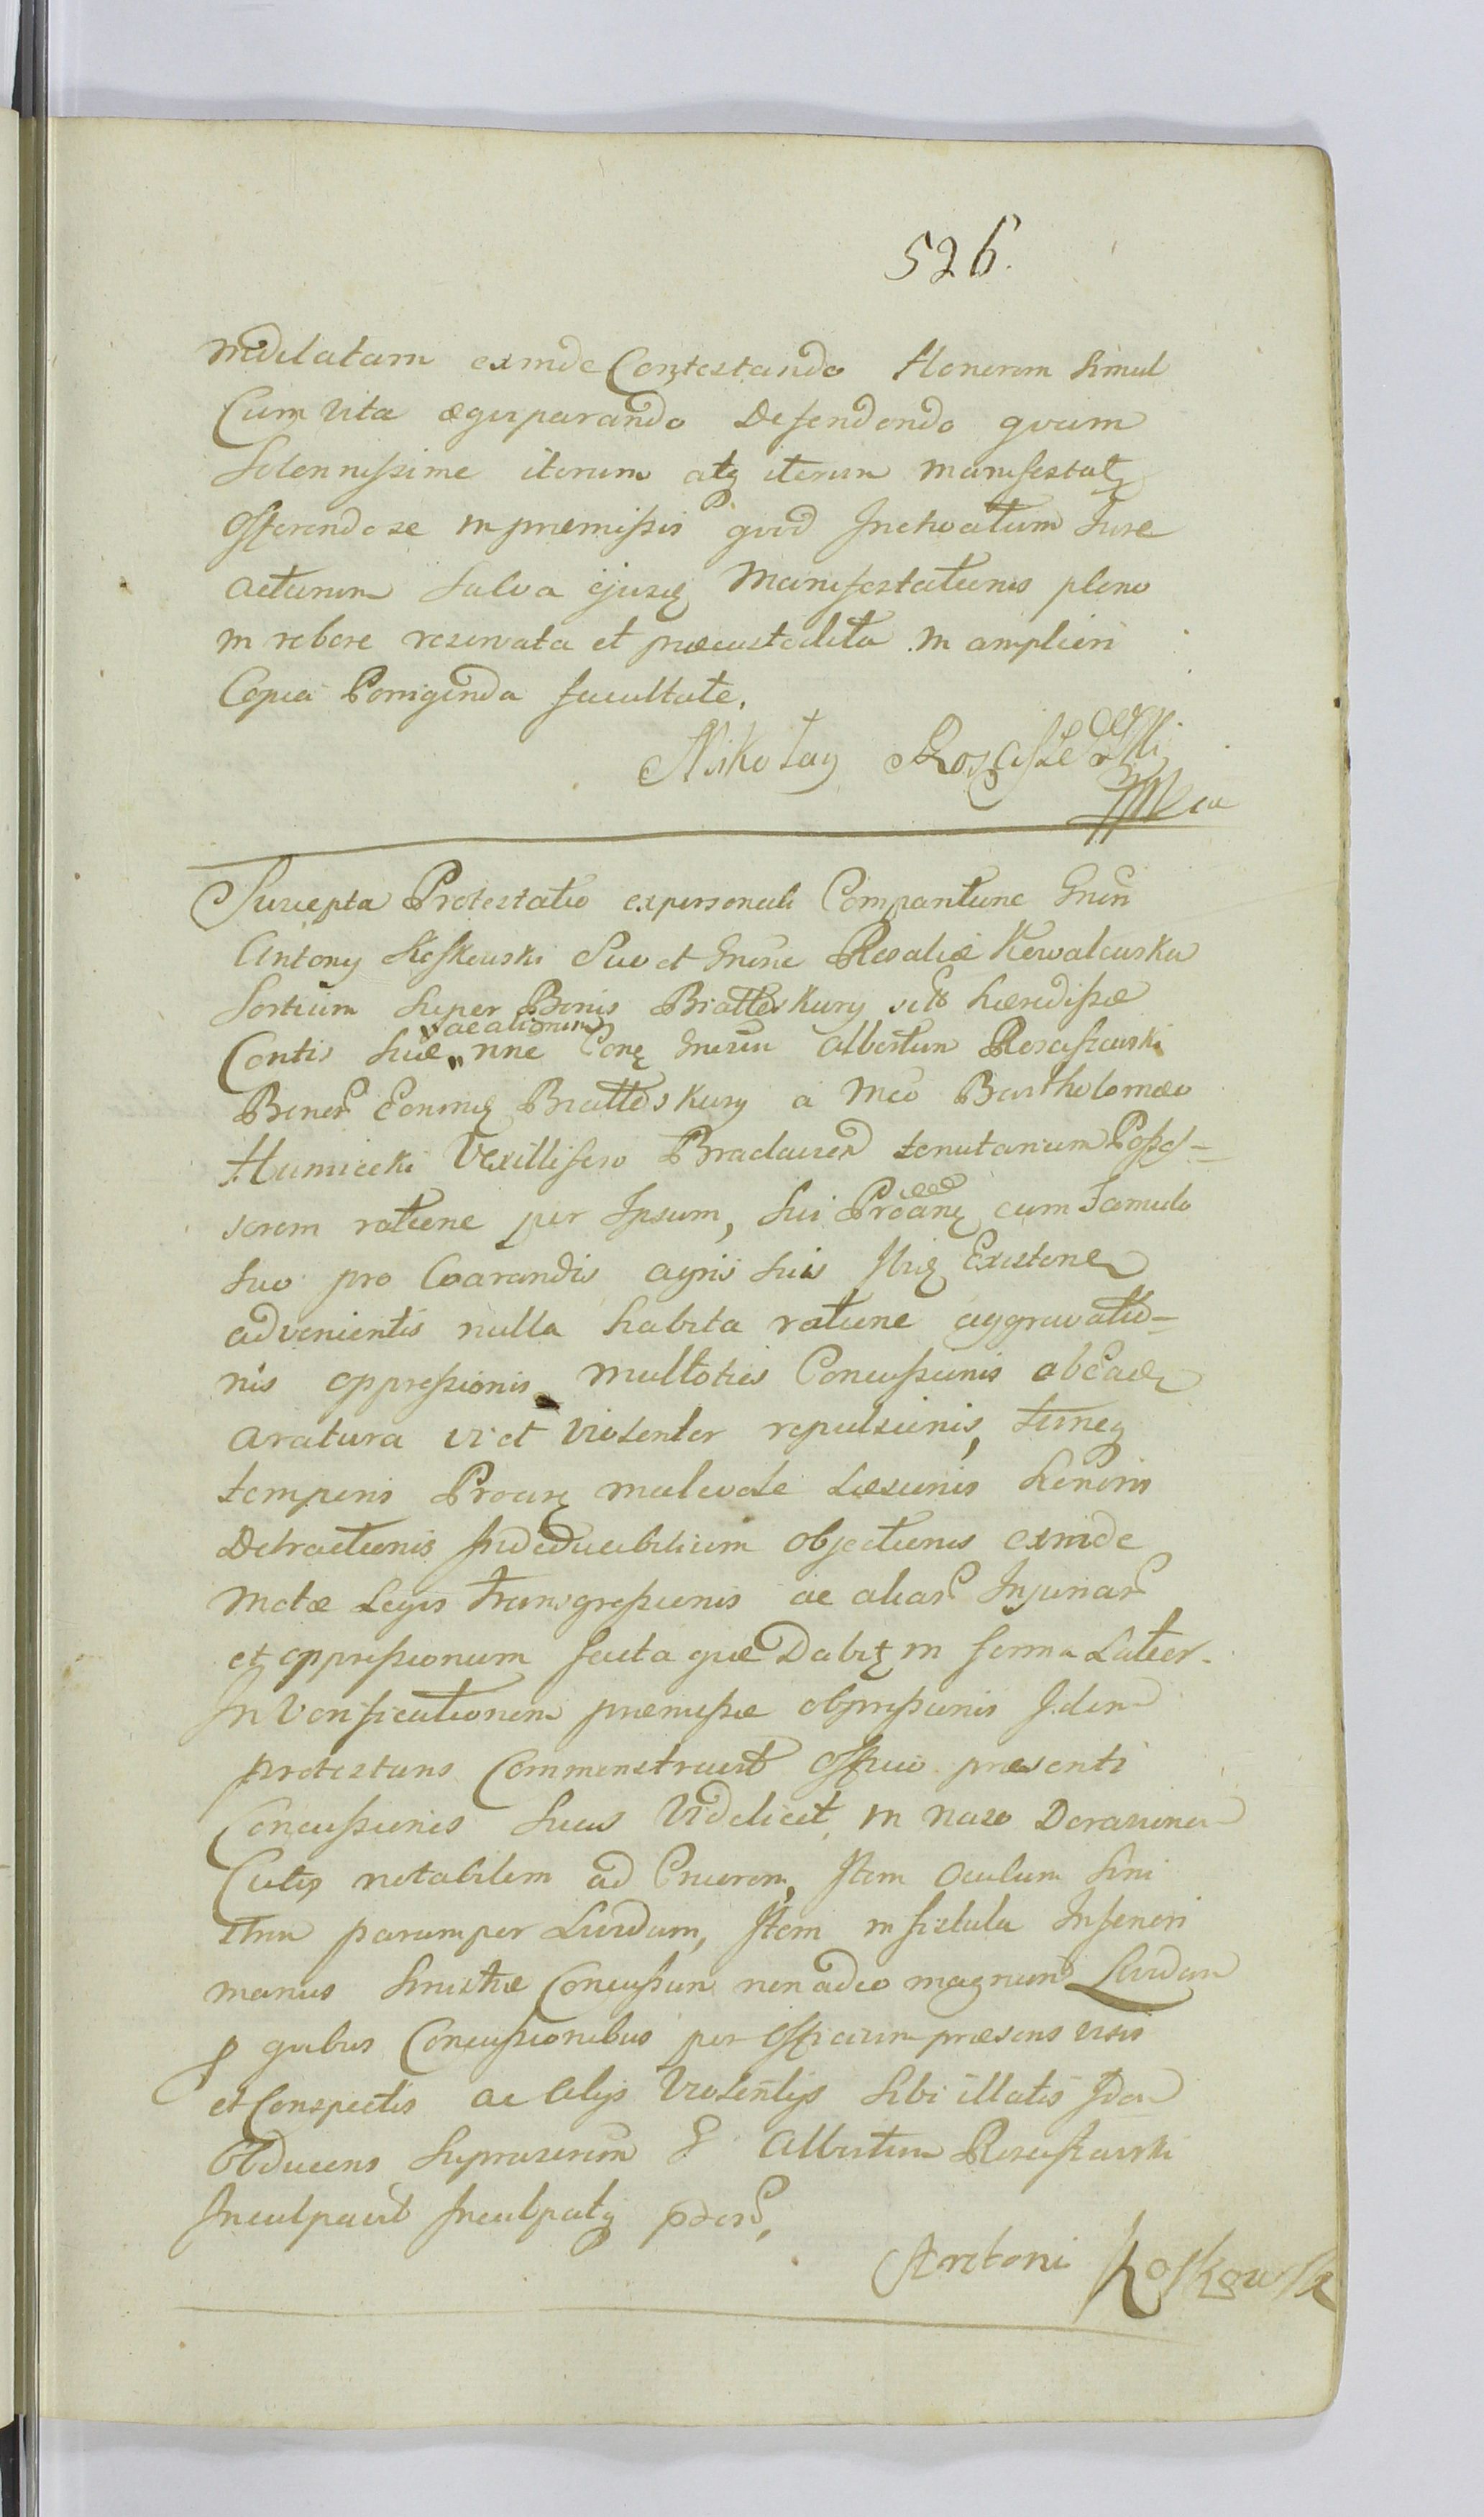 526.
mdelatam exinde Contestando Honorem Simul
Cum Vita æquiparando Defendendo quam
Solennissime iterum atq iterum manifestat
Offerendo se in præmissis quod Inchoatum Jure
acturum Salva ejusq Manifestationis pleno
in robore reservata et præcustodita in ampliori
Copia Porrigenda facultate.
Nikołay
Suscepta Protestatio ex personali Comparitione Gnēri
Antony Suo et Gnēsæ Rosaliæ Kowalewska
Sortium super Bonis Białłeskury hæredissæ
Contis Suæ vacationum nne Albertum Rosciszewski
Bonor Białłeskury a Mco Bartholomæo
Humiecki Vexillifero Braclavien tenutarium Posses=
sorem ratione per Ipsum, Sui cum Famulo
Suo pro Coarandis agris Suis Existen
advenientis nulla habita ratione aggravatio=
nis oppressionis multoties Concussionis ab eadem
aratura vi et violenter repulsionis, tuneq
temporis malevole Læsionis Honoris
Detractionis Indeducibilium objectionis exinde
motæ Legis transgressionis ac aliar Injuriar
et oppressionum facta quæ Dabit in forma Latior.
In Verificationem præmissæ obpressionis Idem
protestans Commonstravit Officio præsenti
Concussiones Suas Videlicet in naso Derasionem
Cutis notabilem ad Cruorem, Item Oculum Sini
strum parumper Lividum, Item in fistula Inferiori
manus Sinistræ Concussum non adeo magnum Lividum
p quibus Concussionibus per Officium præsens visis
et Conspectis ac Alijs Violentijs Sibi illatis Idem
Obducens suprascrium G Albertum Rosciszewski
Inculpavit Inculpatq pdord,
Antoni